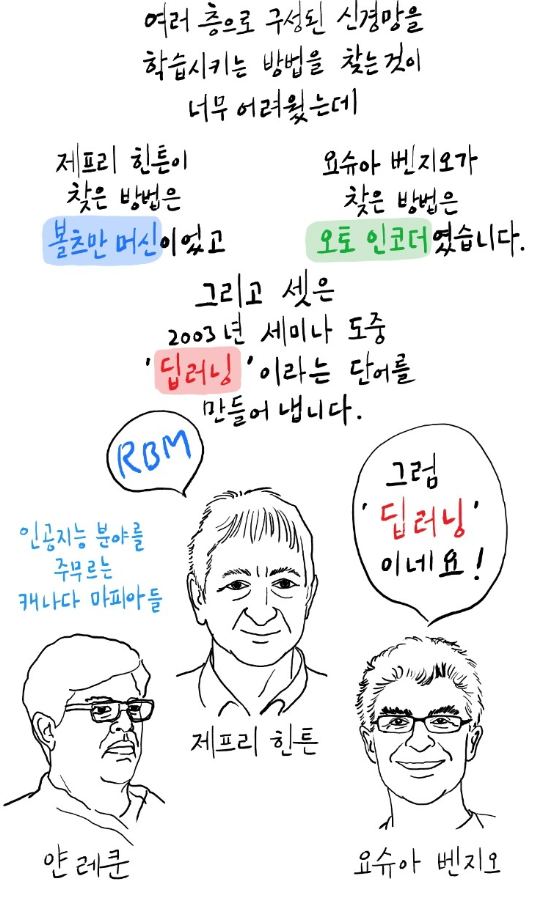 여러 층으로 구성된 신경망을
학습시키는 방법을 찾는것이
너무 어려웠는데
제프리 힌튼이
찾은 방법은
볼츠만 머신이었고
요슈아 벤지오가
찾은 방법은
오토 인코더였습니다.
그리고 셋은
2003년 세미나 도중
'딥러닝'이라는 단어를
만들어 냅니다.
RBM
그럼
'딥러닝'
이네요!
인공지능 분야를
주무르는
캐나다 마피아들
제프리 힌튼
얀 레쿤
요슈아 벤지오